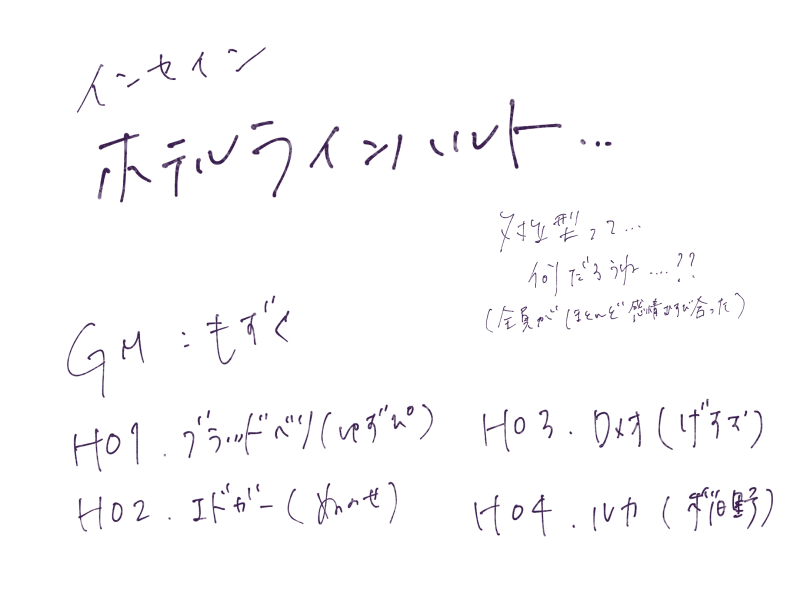 インセイン
ホテルラインハルト…
対立型って…
何だろうね….??
(全員がほとんど感情むすび合った)
GM:もずく
HO1.ブラッドベリ(ゆずぴ)
HO2.エドガー(ぬのせ)
HO3.ロメオ(げすす)
HO4.ルカ(野)